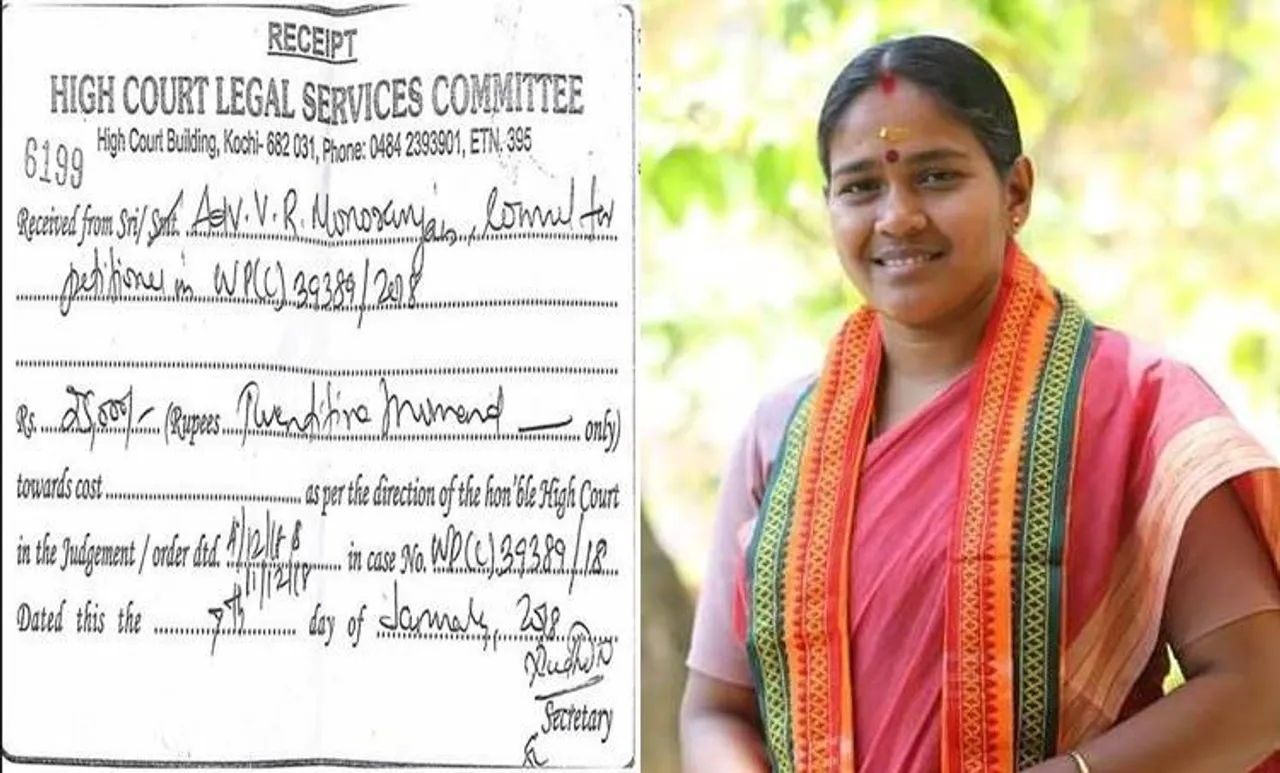 RECEIPT
HIGH COURT LEGAL SERVICES COMMITTEE
High Court Building, Kochi- 682 031, Phone: 0484 2393901, ETN. 395
6199
Received from Sri/ Smt. Adv. V. R. Manoranjan, Counsel for
petitioner in WP(C) 39389/2018
Rs. 25,000/- (Rupees Twentifive Thousand only)
towards cost as per the direction of the hon'ble High Court
in the Judgement / order dtd. 4/12/18 & in case No. WP(C). 39389/18
11/12/18
Dated this the 7th day of January, 2018
Secretary